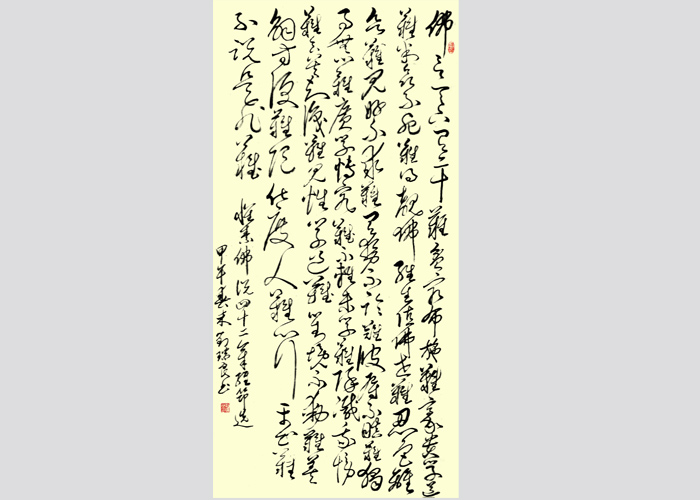 佛言天下有二十難貧窮布施難豪貴學道
難棄命不死難得覩佛經難生值佛世難忍色離
欲難見好不求難有勢不臨難被辱不瞋難觸
事無心難廣學博究難不輕未學難除滅我慢
難會善知識難見性學道難對境不動難善
解方便難隨化度人難心行平等難
不說是非難 佛說四十二章經節選
甲午春末劉瑞良書